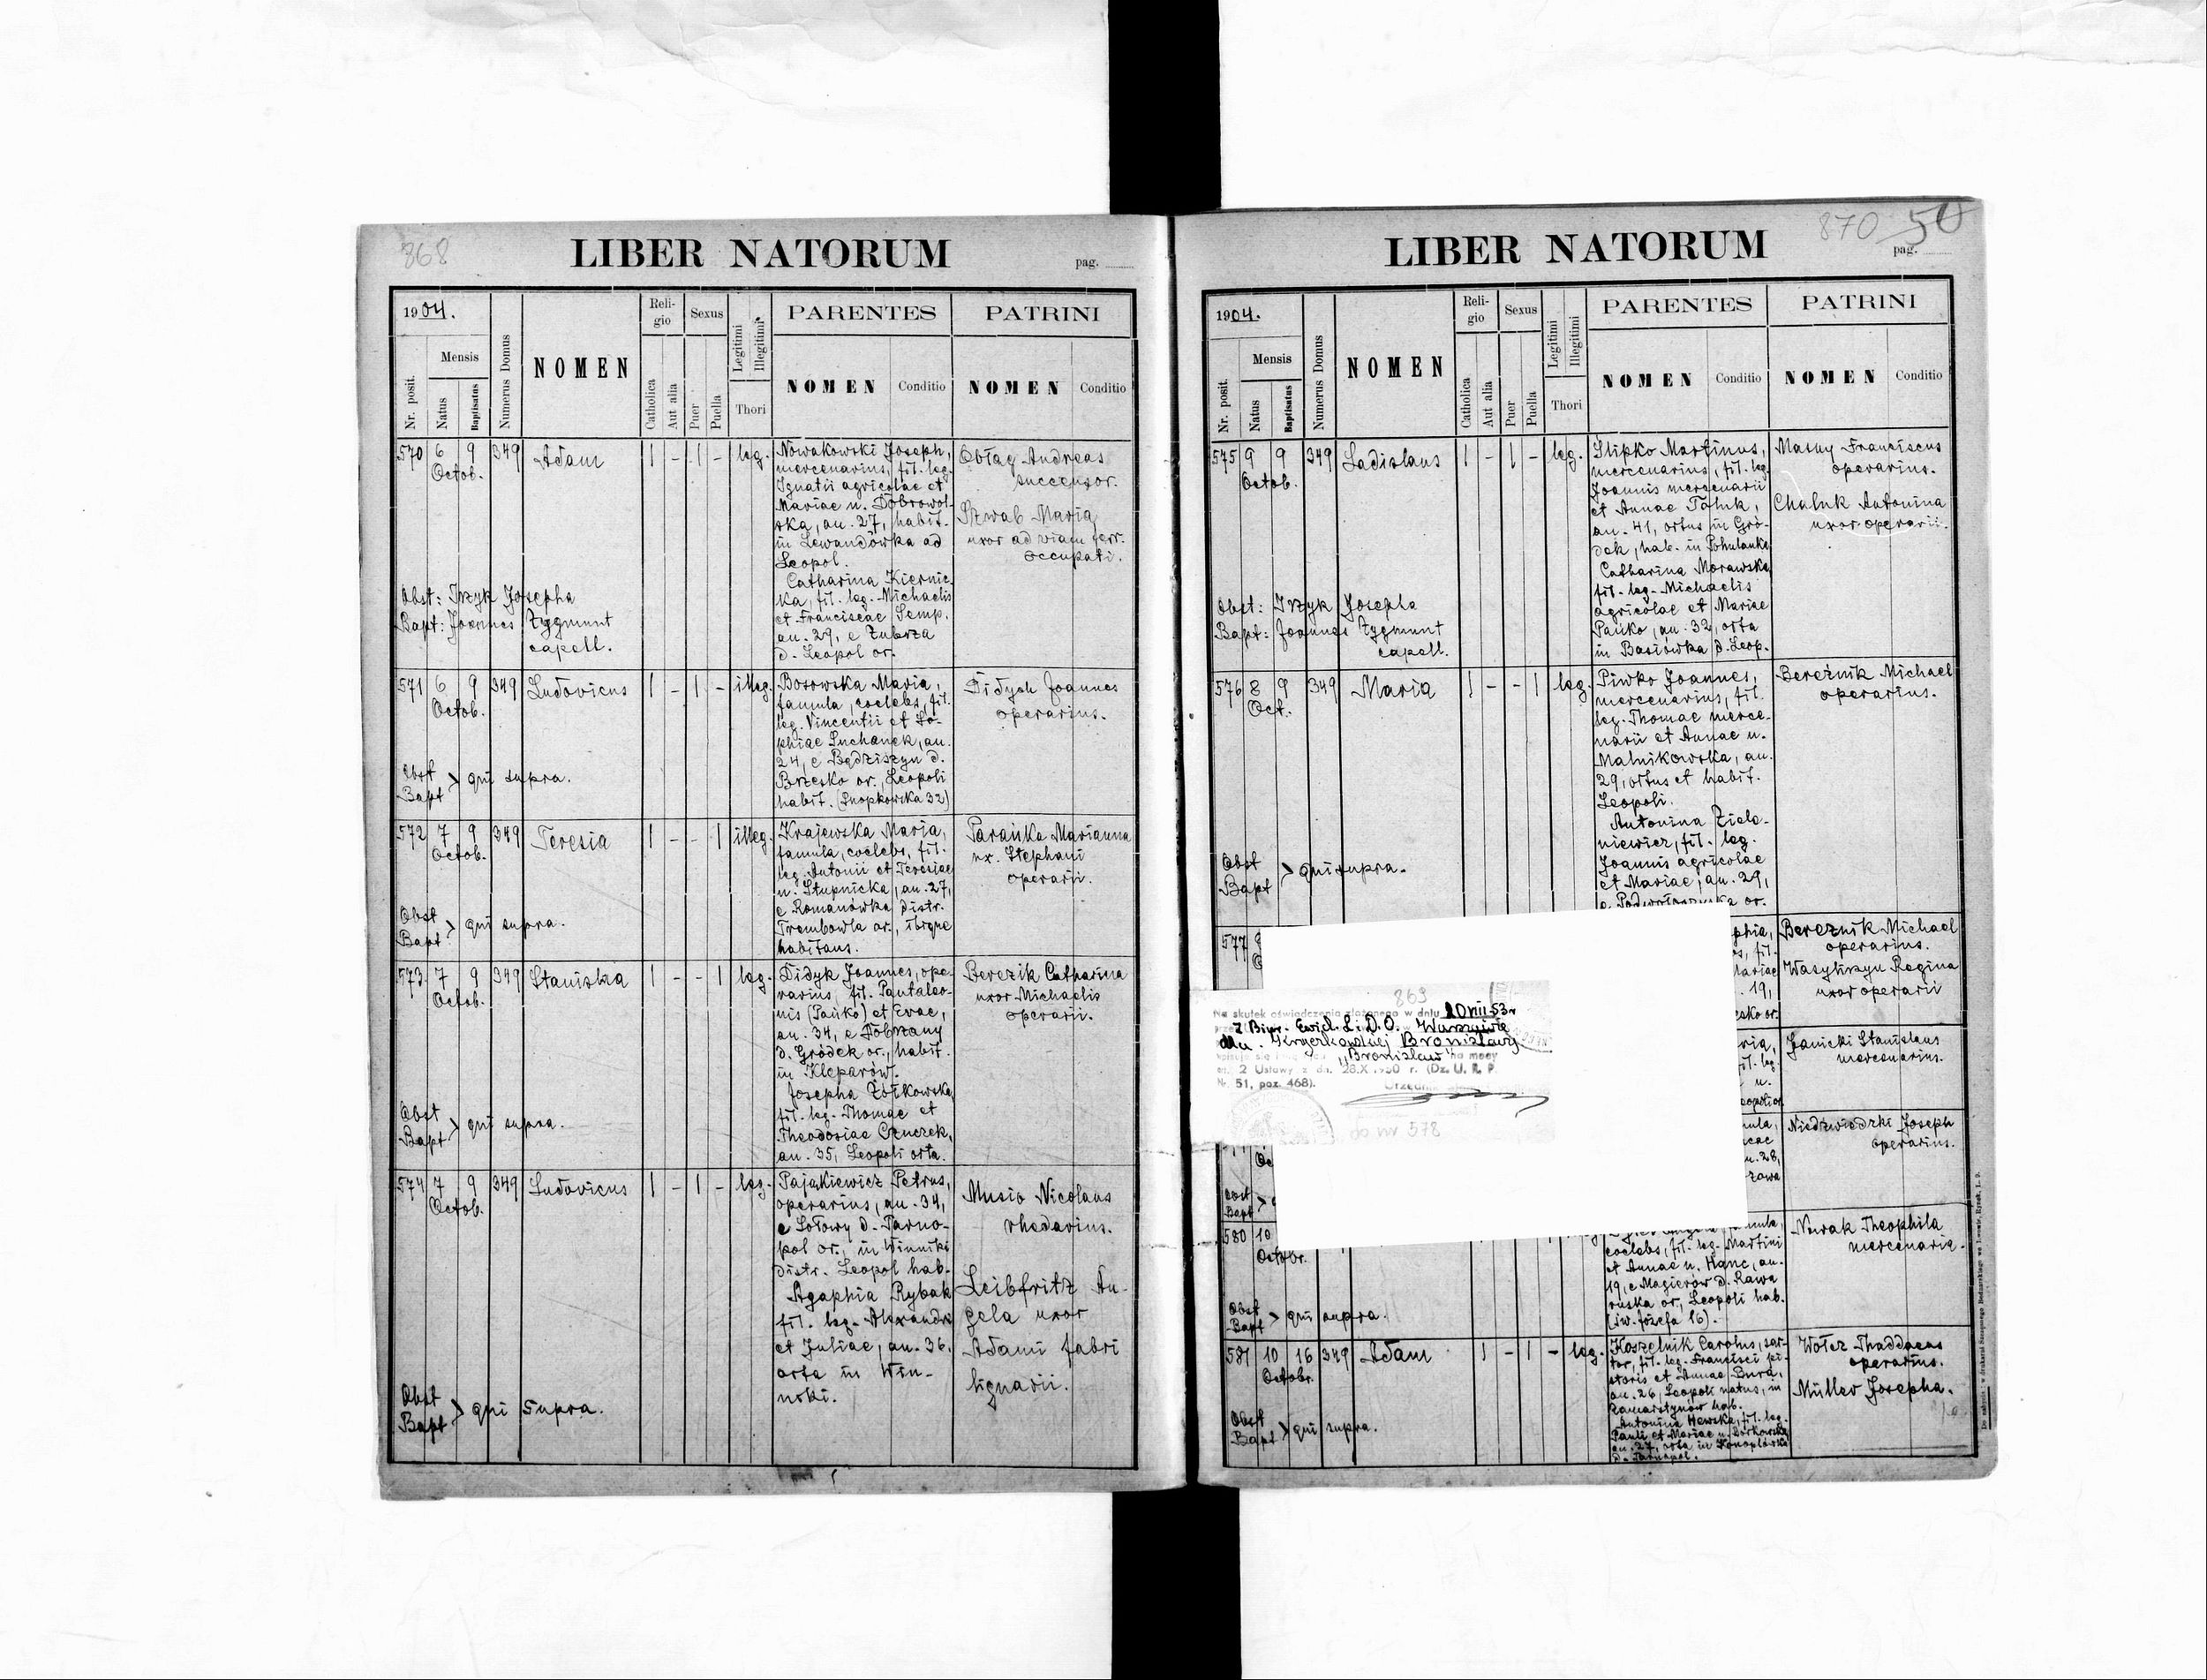 868
LIBER NATORUM
pag.
1904.
Mensis
Nr. posit.
Natus
Baptisatus
Numerus Domus
NOMEN
Religio
Catholica
Aut alia
Sexus
Puer
Puella
Legitimi
Illegitimi
Thori
PARENTES
NOMEN
Conditio
PATRINI
NOMEN
Conditio
570 6 9 349 Adam 1 - 1 - leg.
Octob.
Nowakowski Joseph,
mercenarius, fil. leg.
Ignatii agricolae et
Mariae n. Dobrowol-
ska, an. 27, habit.
in Lewandówka ad
Leopol.
Catharina Kiernic-
ka, fil. leg. Michaelis
et Franciscae Semp.
an. 29, e Zubrza
d. Leopol or.
Obłag Andreas
successor.
Szwab Maria
uxor ad viam ferr.
occupati.
Obst: Irzyk Josepha
Bapt: Joannes Zygmunt
capell.
571 6 9 349 Ludovicus 1 - 1 - illeg.
Octob.
Bosowska Maria,
famula, coelebs, fil.
leg. Vincentii et So-
phiae Suchanek, an.
24, e Będziszyn d.
Brzesko or., Leopoli
habit. (Snopkowska 32)
Didych Joannes
operarius.
Obst
Bapt > qui supra.
572 7 9 349 Teresia 1 - - 1 illeg.
Octob.
Krajewska Maria,
famula, coelebs, fil.
leg. Antonii et Teresiae
n. Stupnicka, an. 27,
e Romanówka distr.
Trembowla or., ibique
habitans.
Parańka Marianna
ux. Stephani
operarii.
Obst
Bapt > qui supra.
573 7 9 349 Stanislaa 1 - - 1 leg.
Octob.
Didyk Joannes, ope-
rarius, fil. Pantaleo-
nis (Pańko) et Evae,
an. 34, e Dobrzany
d. Gródek or., habit.
in Kleparów.
Josepha Żółkowska,
fil. leg. Thomae et
Theodosiae Cznczek,
an. 35, Leopoli orta.
Berezik Catharina
uxor Michaelis
operarii.
Obst
Bapt > qui supra.
574 7 9 349 Ludovicus 1 - 1 - leg.
Octob.
Pajakiewicz Petrus,
operarius, an. 34,
e Sołowy d. Tarno-
pol or., in Winniki
distr. Leopol hab.
Agaphia Rybak
fil. leg. Alexandri
et Juliae, an. 36.
orta in Win-
niki.
Musio Nicolaus
rhedarius.
Leibfritz An-
gela uxor
Adami fabri
lignarii.
Obst
Bapt > qui supra.
870 50
LIBER NATORUM
pag.
1904.
Mensis
Nr. posit.
Natus
Baptisatus
Numerus Domus
NOMEN
Religio
Catholica
Aut alia
Sexus
Puer
Puella
Legitimi
Illegitimi
Thori
PARENTES
NOMEN
Conditio
PATRINI
NOMEN
Conditio
575 9 9 349 Ladislaus 1 - 1 - leg.
Octob.
Slipko Martinus,
mercenarius, fil. leg.
Joannis mercenarii
et Annae Tołuk,
an. 41, ortus in Gró-
dek, hab. in Pohulanka
Catharina Morawska
fil. leg. Michaelis
agricolae et Mariae
Pańko, an. 32, orta
in Basiówka d. Leop.
Masny Franciscus
operarius.
Chaluk Antonina
uxor operarii.
Obst: Irzyk Josepha
Bapt: Joannes Zygmunt
capell.
576 8 9 349 Maria 1 - - 1 leg.
Oct.
Piwko Joannes,
mercenarius, fil.
leg. Thomae merce-
narii et Annae n.
Malnikowska, an.
29, ortus et habit.
Leopoli.
Antonina Ziele-
niewicz, fil. leg.
Joannis agricolae
et Mariae, an. 29,
e Podwołoczyska or.
Bereźnik Michael
operarius.
Obst
Bapt > qui supra.
577
Bereznik Michael
operarius.
Wasyliszyn Regina
uxor operarii
869
Na skutek oświadczenia złożonego w dniu 20 VIII 53 r
z Biur. Ewid. L. D. O. Warszawie
Bronisławy
"Bronisław" na mocy
art. 2 Ustawy z dn. 28.X.1950 r. (Dz. U. R. P.
Nr. 51, poz. 468).
do nr 578
Janicki Stanislaus
mercenarius.
Niedźwiedzki Joseph
operarius.
Obst
Bapt >
580 10
Octobr.
coelebs, fil. leg. Martini
et Annae n. Hanc, an.
19, e Magierów d. Rawa
ruska or., Leopoli hab.
(św. Józefa 16).
Nowak Theophila
mercenaria.
Obst
Bapt > qui supra.
581 10 16 349 Adam 1 - 1 - leg.
Octobr.
Koszelnik Carolus, sar-
tor, fil. leg. Francisci pi-
storis et Annae Dura,
an. 26, Leopoli natus, in
Zamarstynów hab.
Antonina Hewska, fil. leg.
Pauli et Mariae n. Borkowska,
an. 27, orta in Konoplówka
d. Tarnopol.
Wołcz Thaddaeus
operarius.
Müller Josepha.
Obst
Bapt > qui supra.